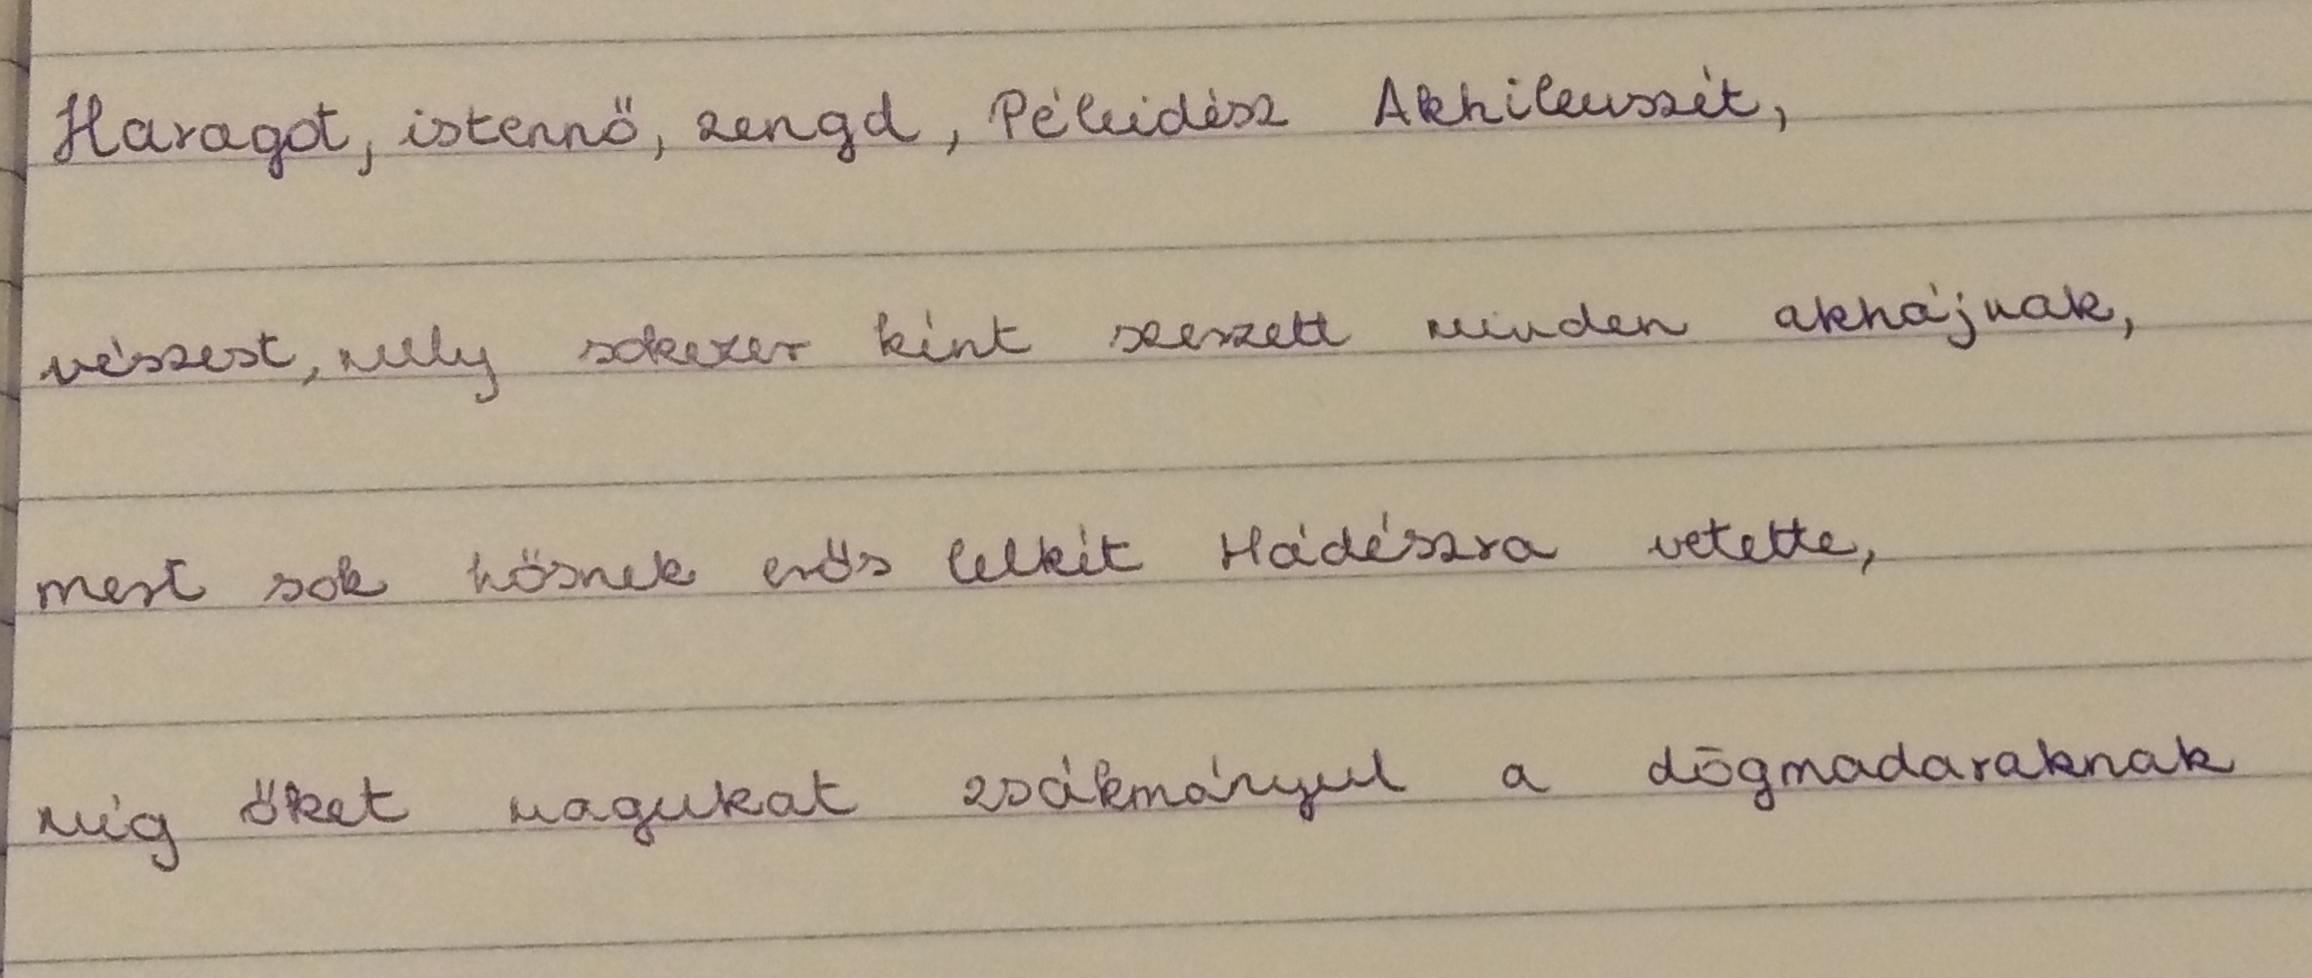 Haragot, istennő, zengd, Péleidész Akhileuszét,
vészest, mely sokezer kínt szerzett minden akhájnak,
mert sok hősnek erős lelkét Hádészra vetette,
míg őket magukat zsákmányul a dögmadaraknak